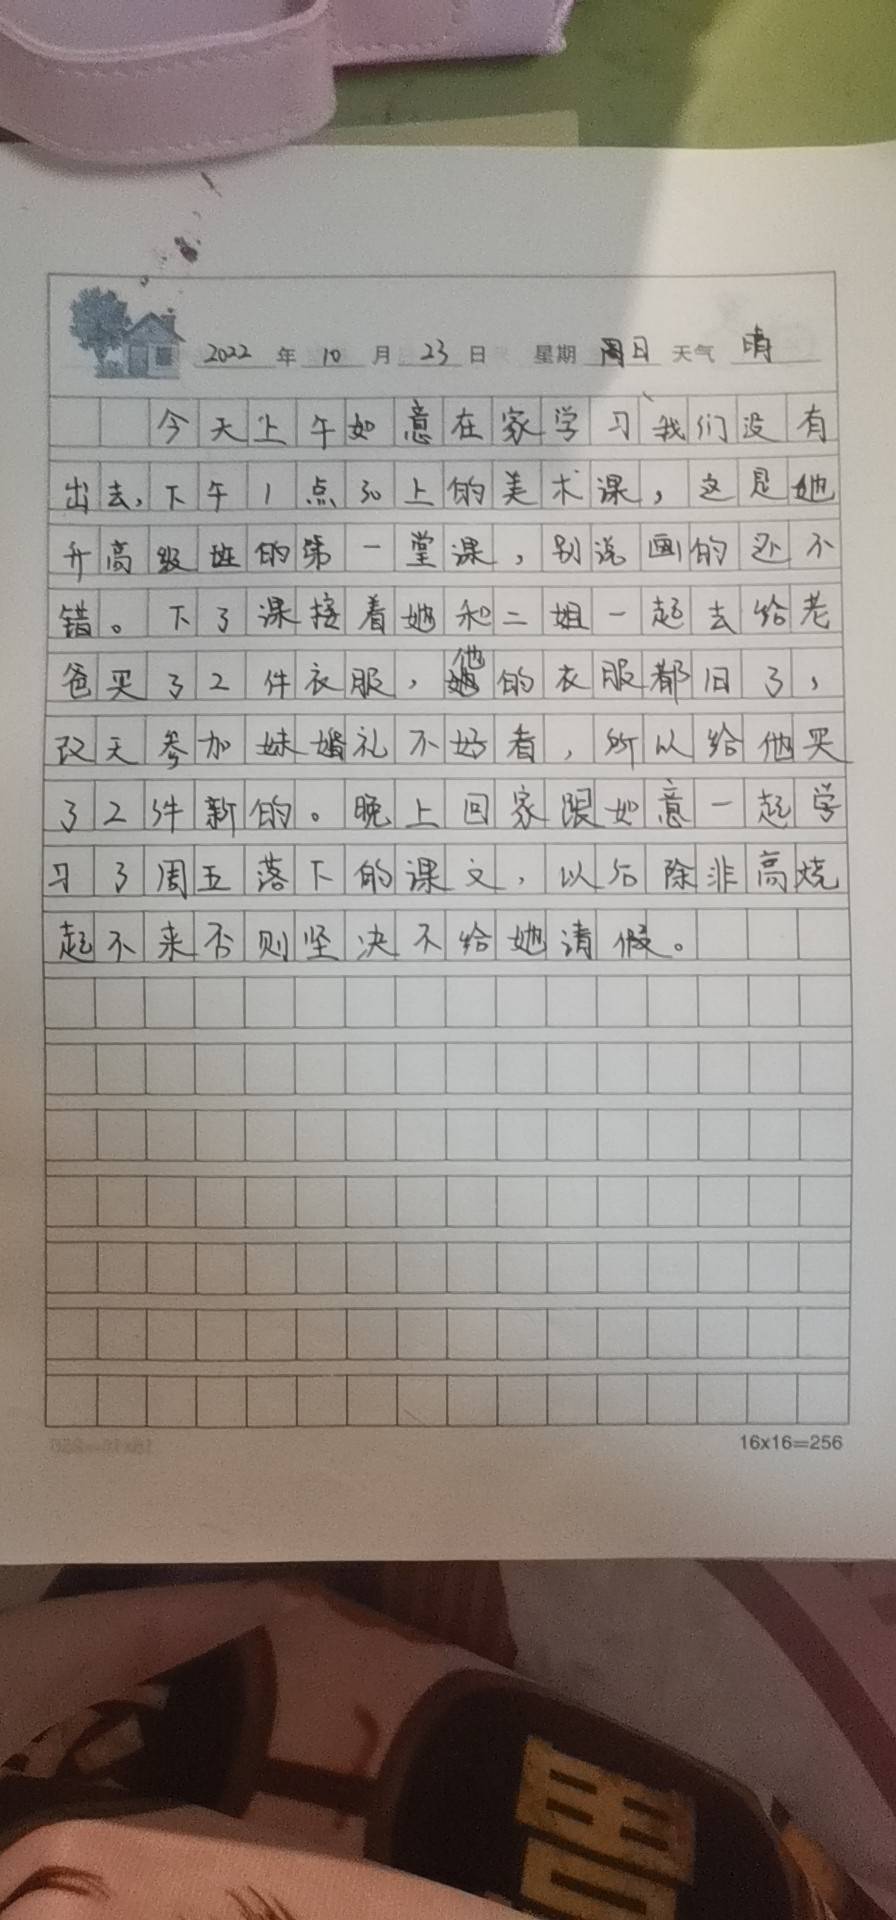 2022 年 10 月 23 日 星期 周日 天气 晴
今天上午如意在家学习、我们没有
出去,下午1点30上的美术课,这是她
升高级班的第一堂课,别说画的还不
错。下了课接着她和二姐一起去给老
爸买了2件衣服,他的衣服都旧了,
改天参加妹婚礼不好看,所以给他买
了2件新的。晚上回家跟如意一起学
习了周五落下的课文,以后除非高烧
起不来否则坚决不给她请假。
16x16=256